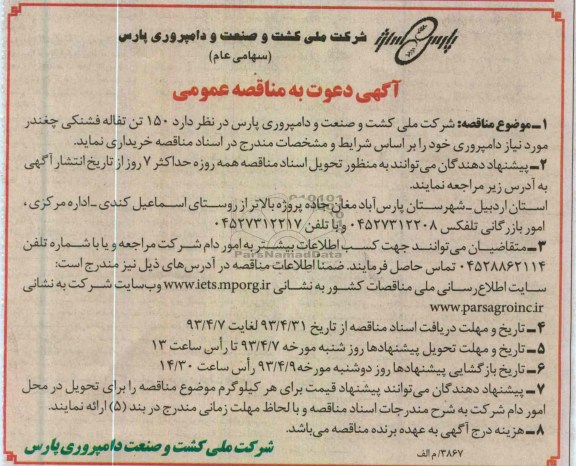 پارس
شرکت ملی کشت و صنعت و دامپروری پارس
(سهامی عام)
آگهی دعوت به مناقصه عمومی
۱ـ موضوع مناقصه: شرکت ملی کشت و صنعت و دامپروری پارس در نظر دارد ۱۵۰ تن تفاله فشنکی چغندر
مورد نیاز دامپروری خود را بر اساس شرایط و مشخصات مندرج در اسناد مناقصه خریداری نماید.
۲ـ پیشنهاد دهندگان می‌توانند به منظور تحویل اسناد مناقصه همه روزه حداکثر ۷ روز از تاریخ انتشار آگهی
به آدرس زیر مراجعه نمایند.
استان اردبیل ـ شهرستان پارس‌آباد مغان جاده پروژه بالاتر از روستای اسماعیل کندی ـ اداره مرکزی ،
امور بازرگانی تلفکس ۰۴۵۲۷۳۱۲۲۰۸ و یا تلفن ۰۴۵۲۷۳۱۲۲۱۷
۳ـ متقاضیان می‌توانند جهت کسب اطلاعات بیشتر به امور دام شرکت مراجعه و یا با شماره تلفن
۰۴۵۲۸۸۶۲۱۱۴ تماس حاصل فرمایند. ضمنا اطلاعات مناقصه در آدرس‌های ذیل نیز مندرج است:
سایت اطلاع‌رسانی ملی مناقصات کشور به نشانی www.iets.mporg.ir وب‌سایت شرکت به نشانی
www.parsagroinc.ir
۴ـ تاریخ و مهلت دریافت اسناد مناقصه از تاریخ ۹۳/۴/۳۱ لغایت ۹۳/۴/۷
۵ـ تاریخ و مهلت تحویل پیشنهادها روز شنبه مورخه ۹۳/۴/۷ تا رأس ساعت ۱۳
۶ـ تاریخ بازگشایی پیشنهادها روز دوشنبه مورخه ۹۳/۴/۹ رأس ساعت ۱۴/۳۰
۷ـ پیشنهاد دهندگان می‌توانند پیشنهاد قیمت برای هر کیلوگرم موضوع مناقصه را برای تحویل در محل
امور دام شرکت به شرح مندرجات اسناد مناقصه و با لحاظ مهلت زمانی مندرج در بند (۵) ارائه نمایند.
۸ـ هزینه درج آگهی به عهده برنده مناقصه می‌باشد.
۳۸۶۷/م الف
شرکت ملی کشت و صنعت دامپروری پارس
ParsNamadData